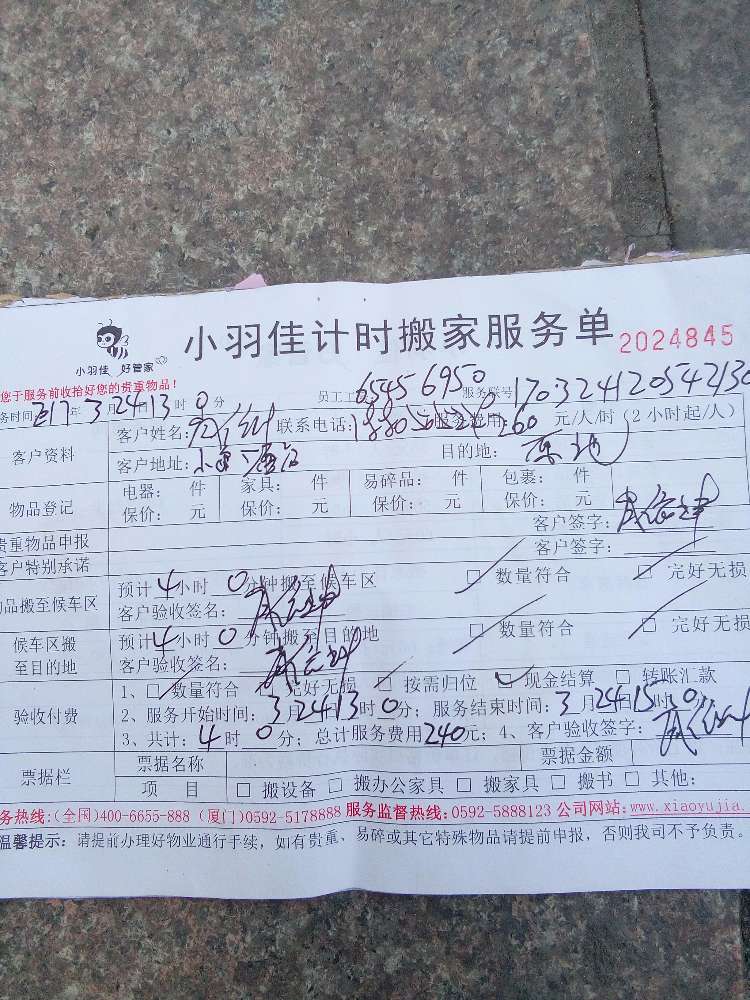 小羽佳计时搬家服务单 2024845
小羽佳 好管家
您于服务前收拾好您的贵重物品!
务时间 年3月24日13时0分 员工工 65456950 服务联号 170324120542130
客户资料
客户姓名: 联系电话: 服务费用: 260 元/人/时(2小时起/人)
客户地址: 目的地:
物品登记
电器: 件 家具: 件 易碎品: 件 包裹: 件
保价: 元 保价: 元 保价: 元 保价: 元
客户签字:
贵重物品申报
客户签字:
客户特别承诺
品搬至候车区
预计4小时0分钟搬至候车区 □ 数量符合 □ 完好无损
客户验收签名:
候车区搬
至目的地
预计4小时0分钟搬至目的地 □ 数量符合 □ 完好无损
客户验收签名:
验收付费
1、□ 数量符合 完好无损 □ 按需归位 现金结算 □ 转账汇款
2、服务开始时间: 3月24日13时0分; 服务结束时间: 3月24日15时0分;
3、共计: 4时0分; 总计服务费用240元; 4、客户验收签字:
票据栏
票据名称 票据金额
项 目 □ 搬设备 □ 搬办公家具 □ 搬家具 □ 搬书 □ 其他:
务热线:(全国)400-6655-888 (厦门)0592-5178888 服务监督热线:0592-5888123 公司网站:www.xiaoyujia.
温馨提示: 请提前办理好物业通行手续, 如有贵重、易碎或其它特殊物品请提前申报, 否则我司不予负责。